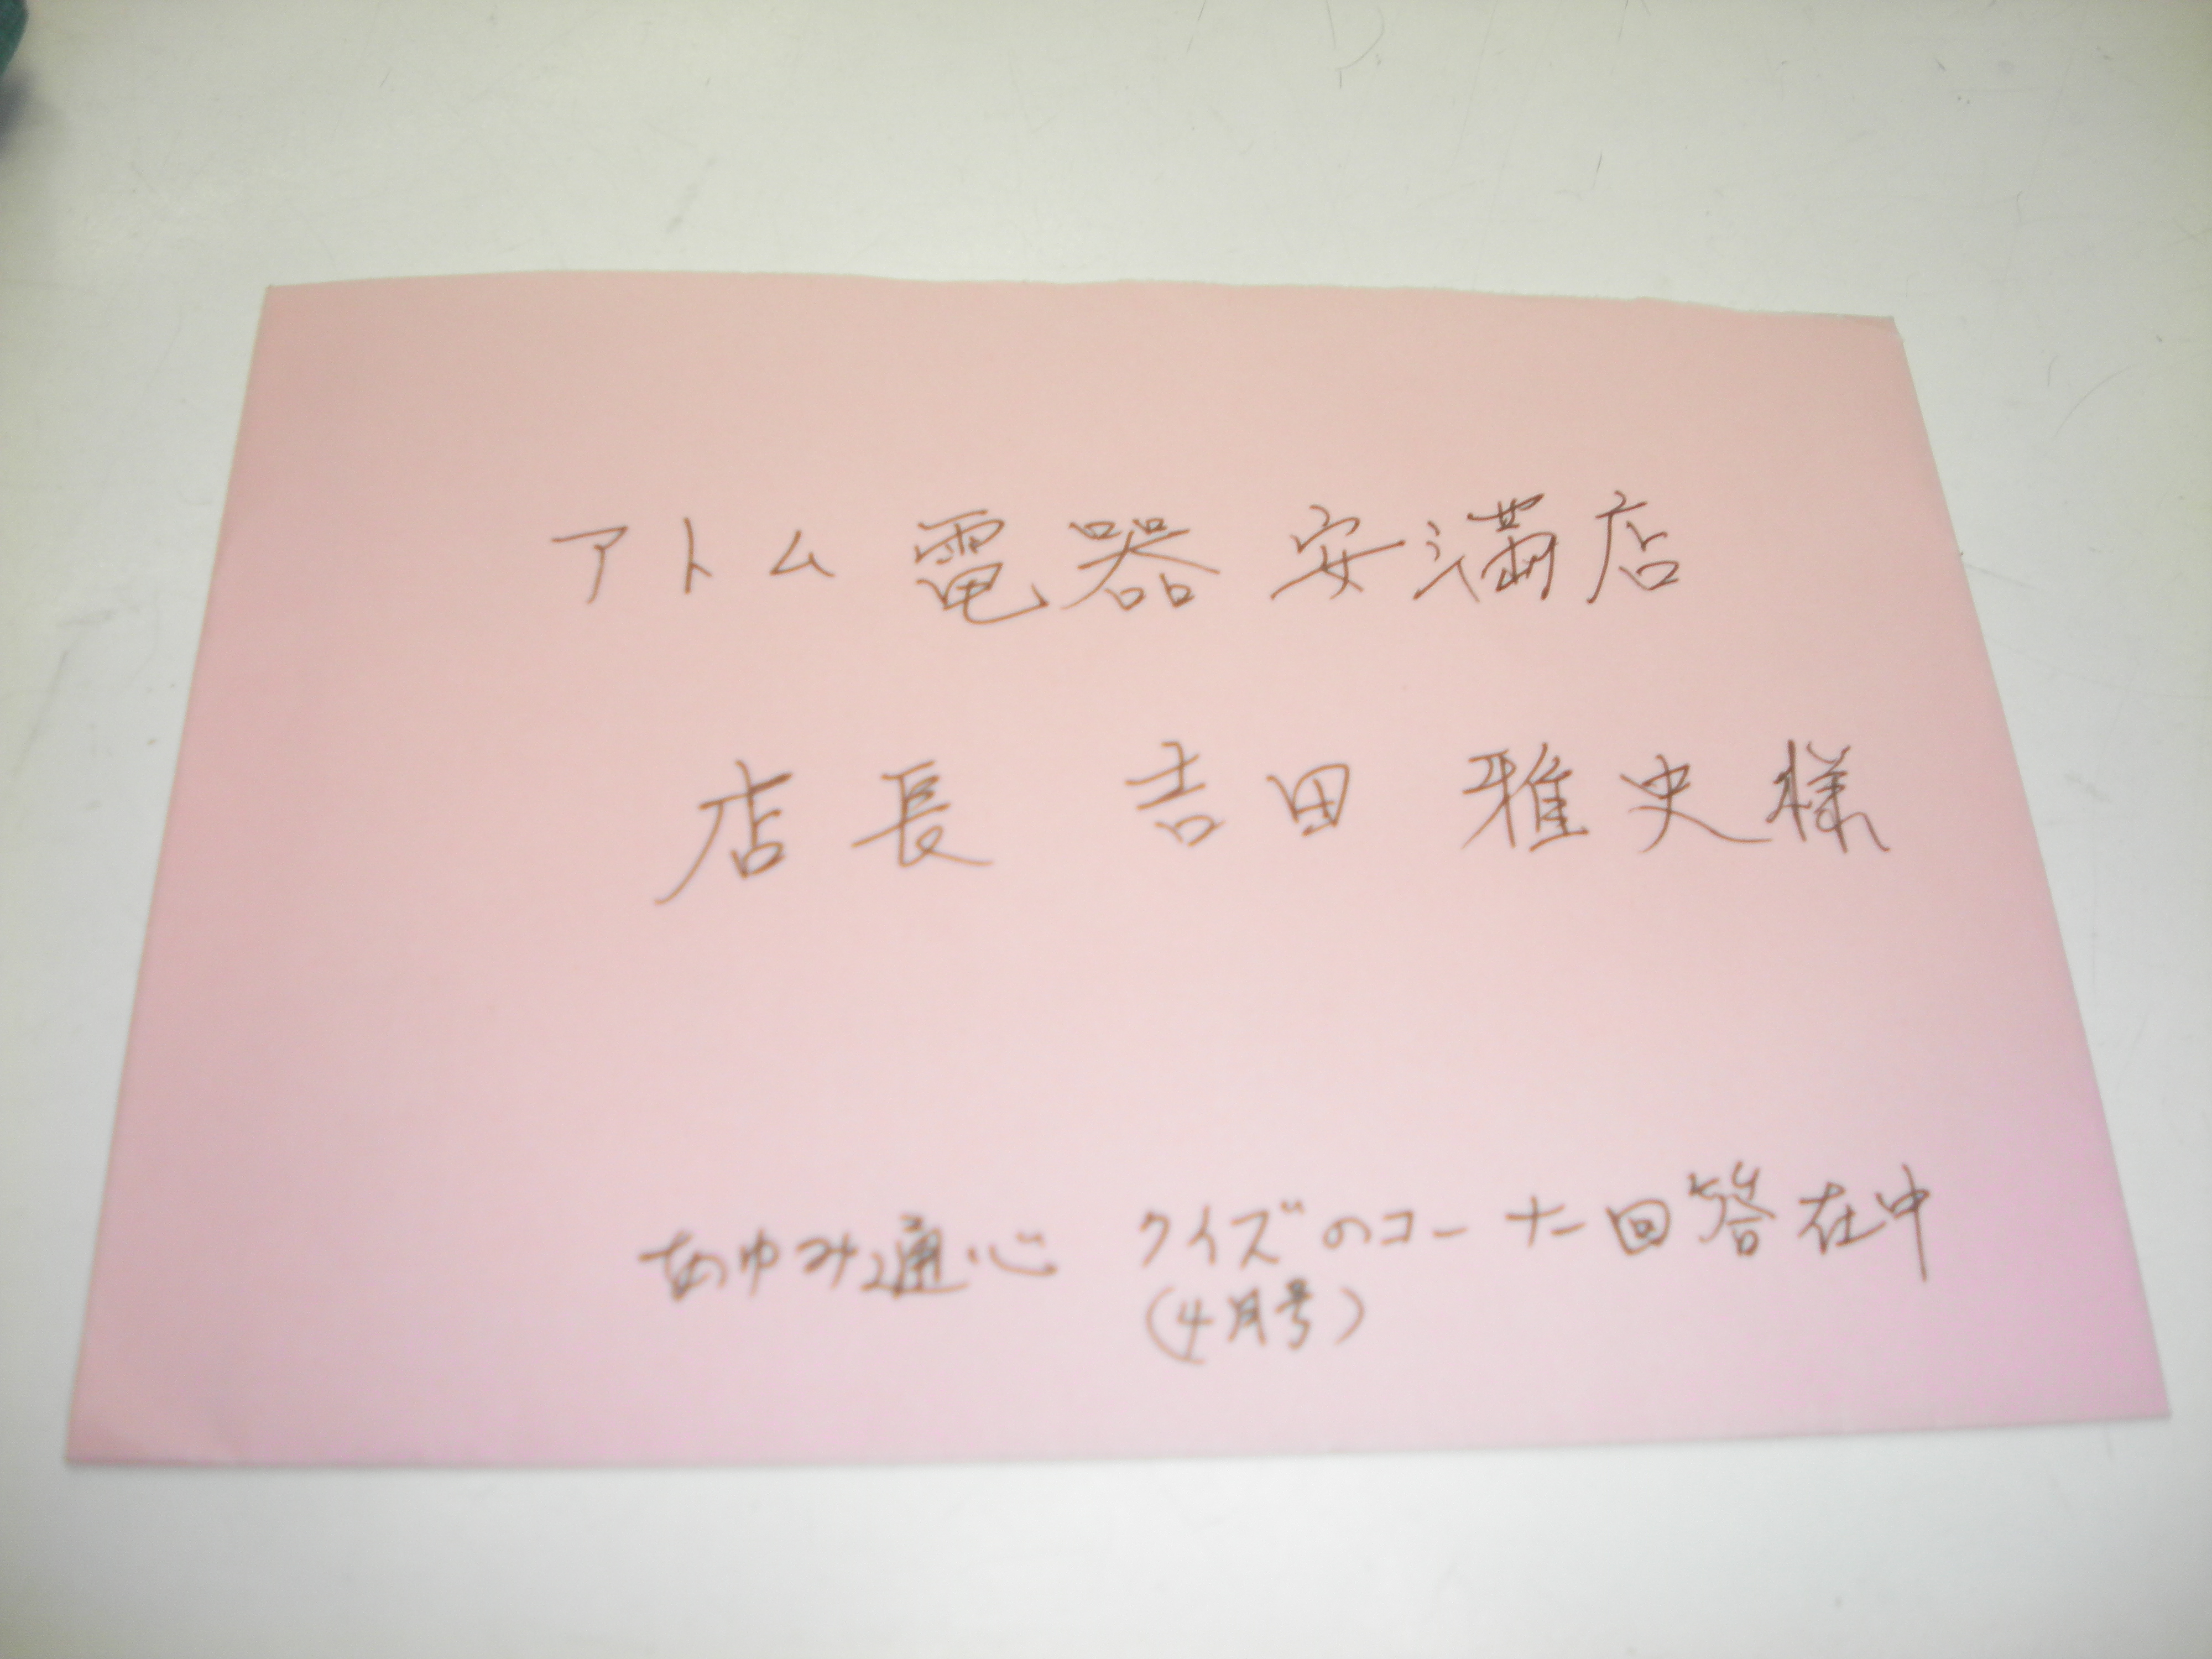 アトム電器安満店
店長 吉田 雅史様
あゆみ通心 クイズのコーナー回答在中
(4月号)